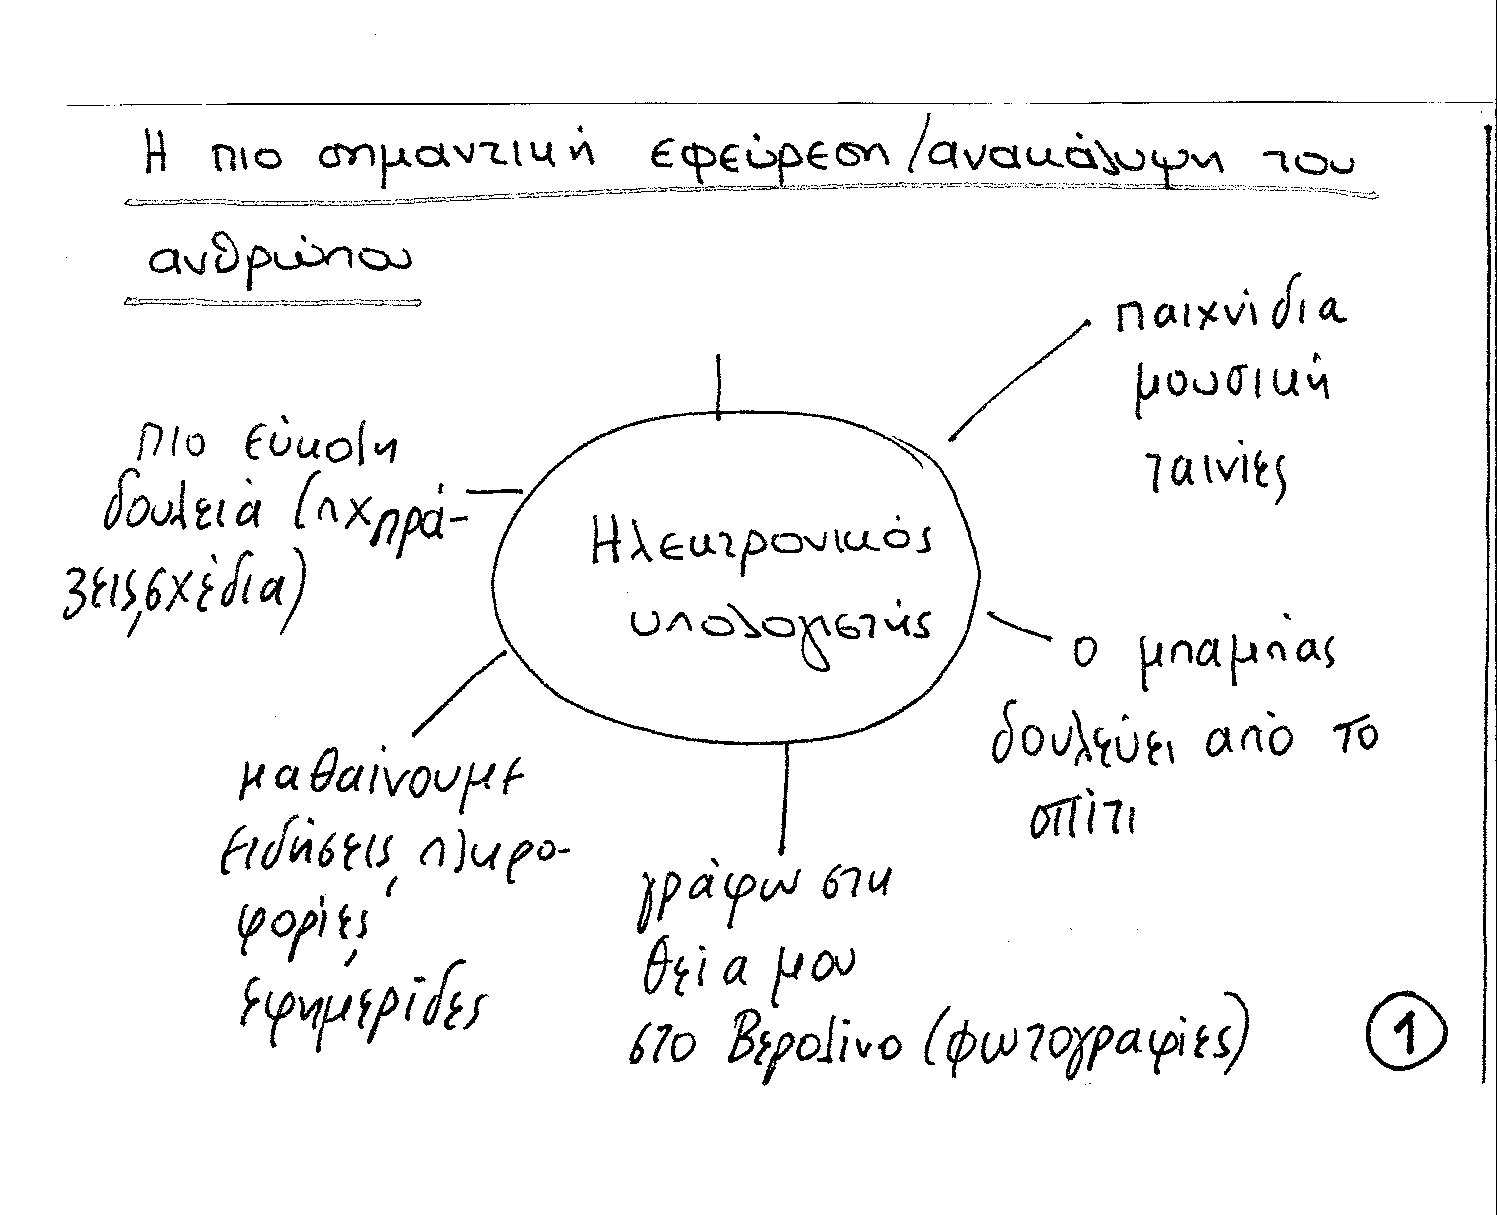 Η πιο σημαντική εφεύρεση/ανακάλυψη του
ανθρώπου
παιχνίδια
μουσική
ταινίες
πιο εύκολη
δουλειά (πχ πρά-
ξεις, σχέδια)
Ηλεκτρονικός
υπολογιστής
ο μπαμπάς
δουλεύει από το
σπίτι
μαθαίνουμε
ειδήσεις, πληρο-
φορίες,
εφημερίδες
γράφω στη
θεία μου
στο Βερολίνο (φωτογραφίες)
1